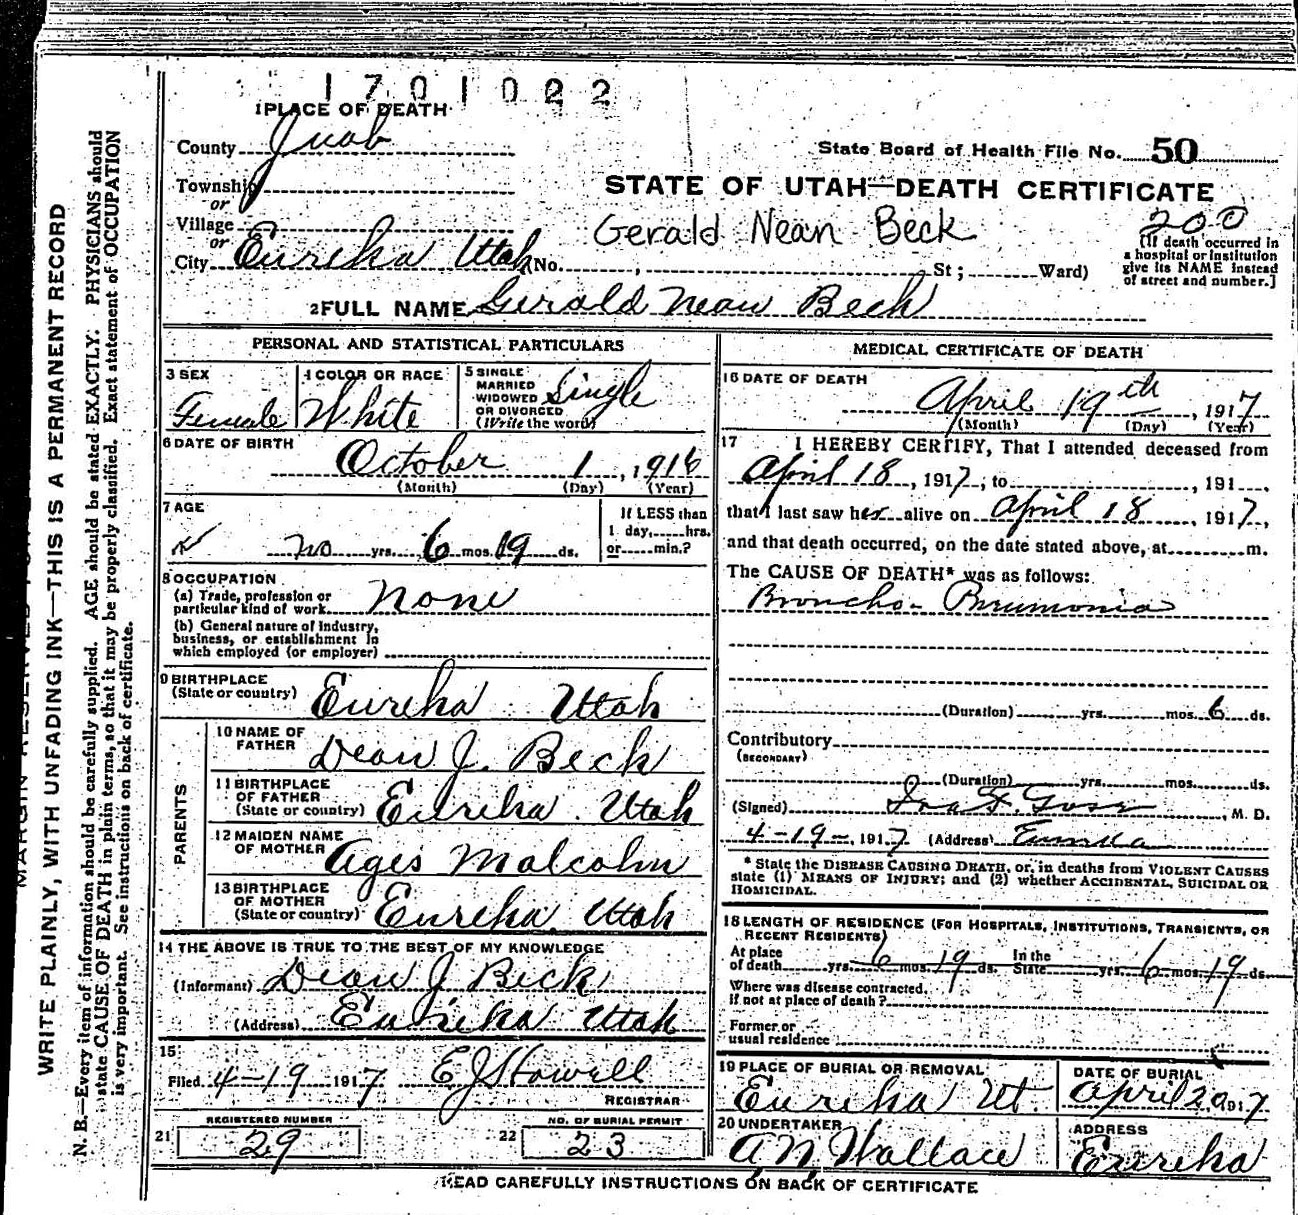 1701022
1 PLACE OF DEATH
County Juab
State Board of Health File No. 50
Township
or
STATE OF UTAH—DEATH CERTIFICATE
Village
or
Gerald Nean Beck
200
City Eureka Utah (No. , St; Ward)
[If death occurred in
a hospital or institution
give its NAME instead
of street and number.]
2 FULL NAME Gerald Nean Beck
PERSONAL AND STATISTICAL PARTICULARS
3 SEX
Female
4 COLOR OR RACE
White
5 SINGLE
MARRIED
WIDOWED
OR DIVORCED
(Write the word)
Single
6 DATE OF BIRTH
October 1, 1916
(Month) (Day) (Year)
7 AGE
no yrs. 6 mos. 19 ds.
If LESS than
1 day, hrs.
or min.?
8 OCCUPATION
(a) Trade, profession or
particular kind of work None
(b) General nature of industry,
business, or establishment in
which employed (or employer)
9 BIRTHPLACE
(State or country) Eureka Utah
PARENTS
10 NAME OF
FATHER Dean J. Beck
11 BIRTHPLACE
OF FATHER
(State or country) Eureka Utah
12 MAIDEN NAME
OF MOTHER Ages Malcolm
13 BIRTHPLACE
OF MOTHER
(State or country) Eureka Utah
14 THE ABOVE IS TRUE TO THE BEST OF MY KNOWLEDGE
(Informant) Dean J Beck
(Address) Eureka Utah
15
Filed 4-19 1917 E J Howell
REGISTRAR
REGISTERED NUMBER
21 29
NO. OF BURIAL PERMIT
22 23
MEDICAL CERTIFICATE OF DEATH
16 DATE OF DEATH
April 19th, 1917
(Month) (Day) (Year)
17 I HEREBY CERTIFY, That I attended deceased from
April 18, 1917, to , 191 ,
that I last saw her alive on April 18, 1917,
and that death occurred, on the date stated above, at m.
The CAUSE OF DEATH* was as follows:
Broncho-Pneumonia
(Duration) yrs. mos. 6 ds.
Contributory
(SECONDARY)
(Duration) yrs. mos. ds.
(Signed) , M. D.
4-19-, 1917 (Address) Eureka
* State the DISEASE CAUSING DEATH, or, in deaths from VIOLENT CAUSES
state (1) MEANS OF INJURY; and (2) whether ACCIDENTAL, SUICIDAL OR
HOMICIDAL.
18 LENGTH OF RESIDENCE (FOR HOSPITALS, INSTITUTIONS, TRANSIENTS, OR
RECENT RESIDENTS)
At place
of death yrs. 6 mos. 19 ds. In the
State yrs. 6 mos. 19 ds.
Where was disease contracted,
if not at place of death?
Former or
usual residence
19 PLACE OF BURIAL OR REMOVAL
Eureka Ut.
DATE OF BURIAL
April 20 1917
20 UNDERTAKER
A. N. Wallace
ADDRESS
Eureka
READ CAREFULLY INSTRUCTIONS ON BACK OF CERTIFICATE
WRITE PLAINLY, WITH UNFADING INK—THIS IS A PERMANENT RECORD
N. B.—Every item of information should be carefully supplied. AGE should be stated EXACTLY. PHYSICIANS should
state CAUSE OF DEATH in plain terms, so that it may be properly classified. Exact statement of OCCUPATION
is very important. See instructions on back of certificate.